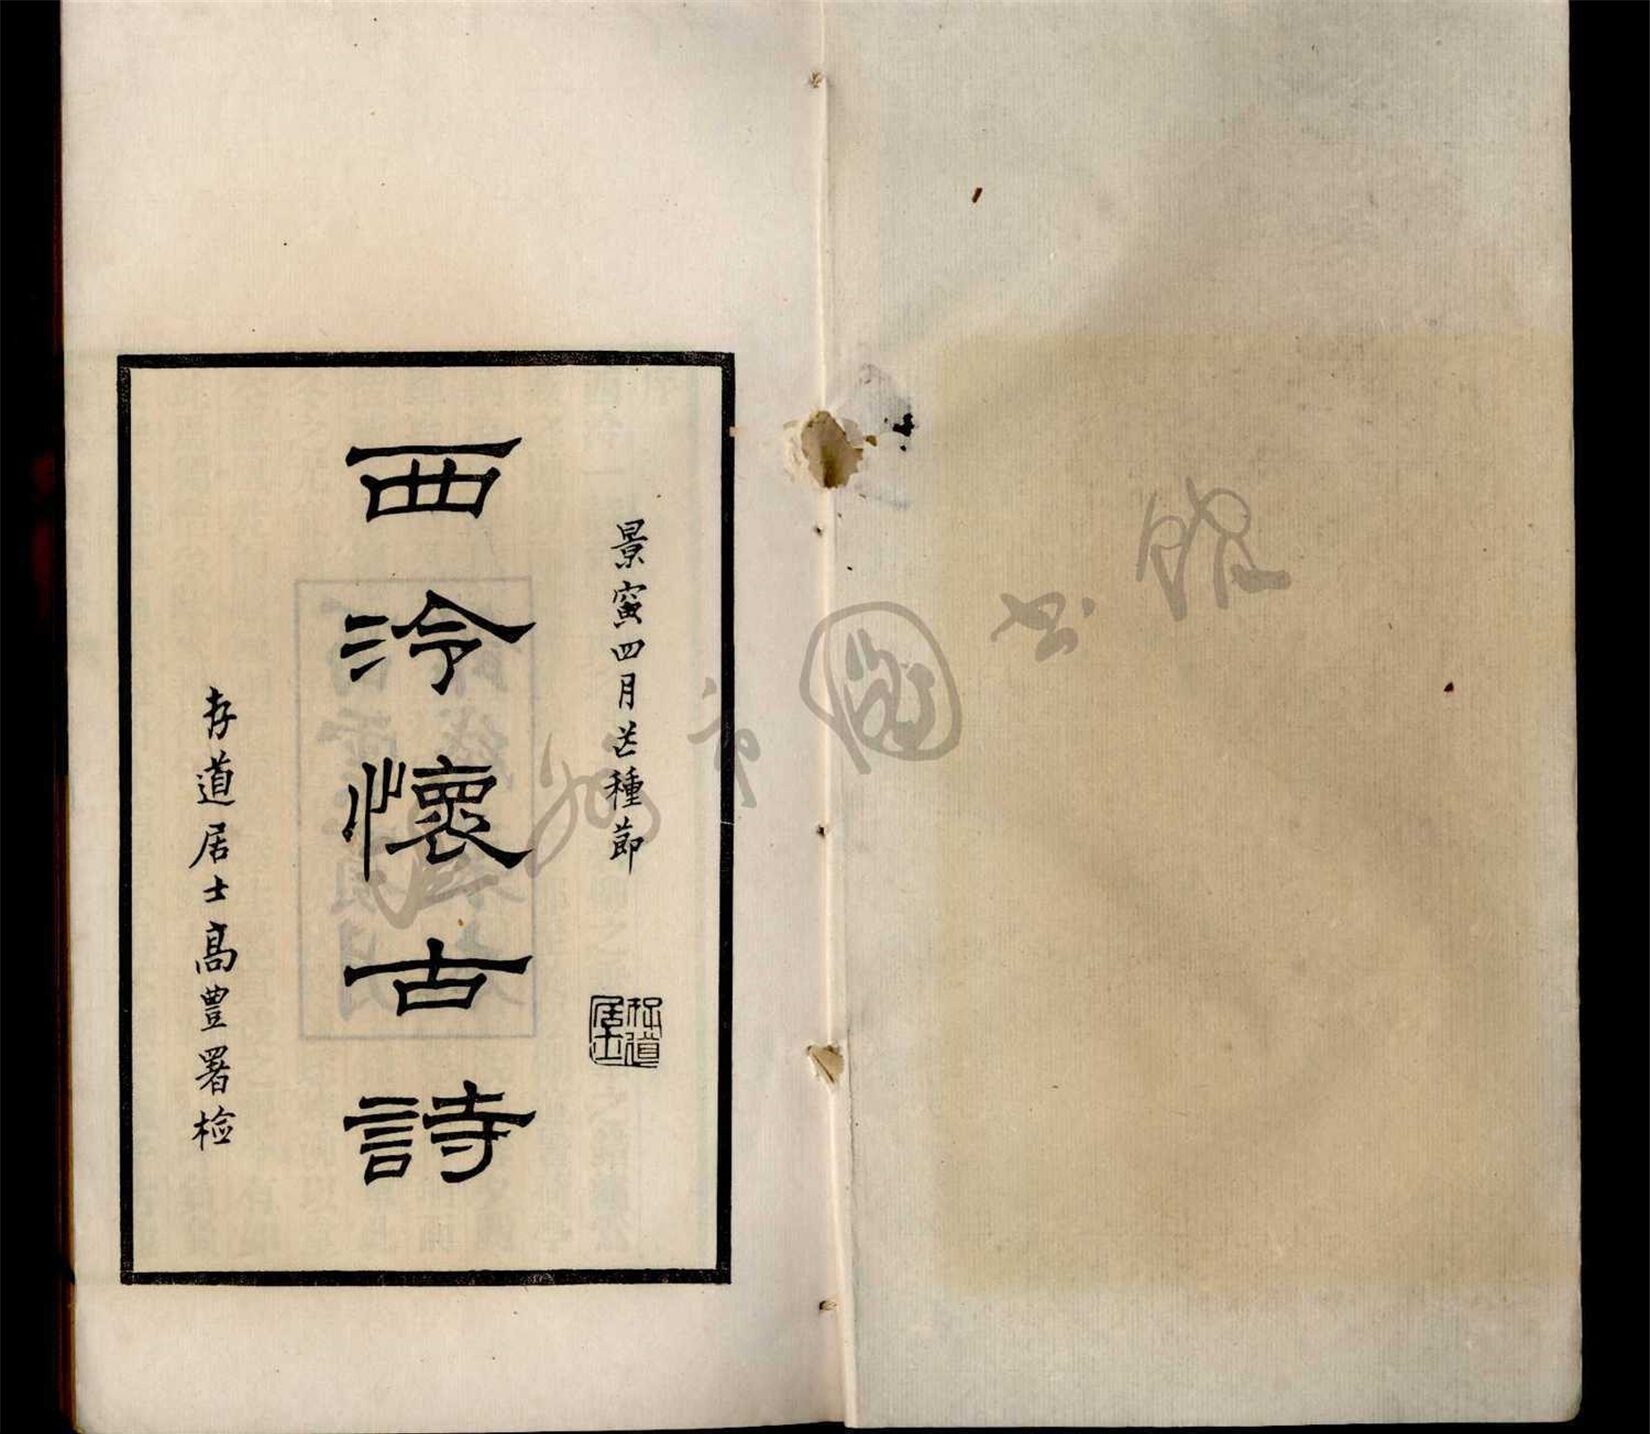 景寅四月芒種節
西泠懷古詩
存道居士高豊署檢
存道居士
市圖書館